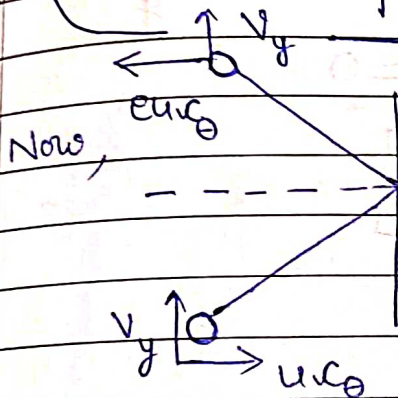 Vy
eu.cθ
Now,
Vy
u.cθ